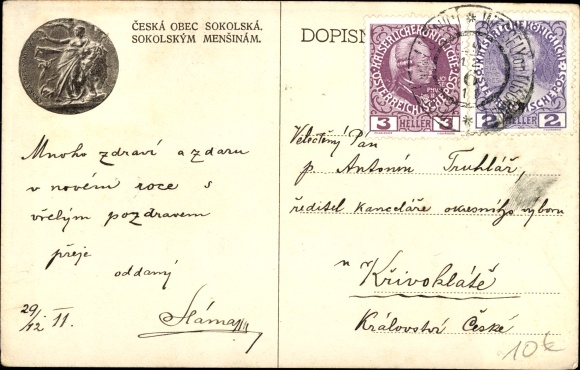 ČESKÁ OBEC SOKOLSKÁ
SOKOLSKÝM MENŠINÁM.
Mnoho zdraví a zdaru
v novém roce s
vřelým pozdravem
přeje
oddaný
Sláma
29/12 11.
DOPISN
KAISERLICHE KÖNIGLICHE
ÖSTERREICHISCHE POST
3 HELLER 3
2 HELLER 2
Veletěný Pán
p. Antonín Truhlář,
ředitel kanceláře okresního výboru
n Křivoklátě
Království České
10€